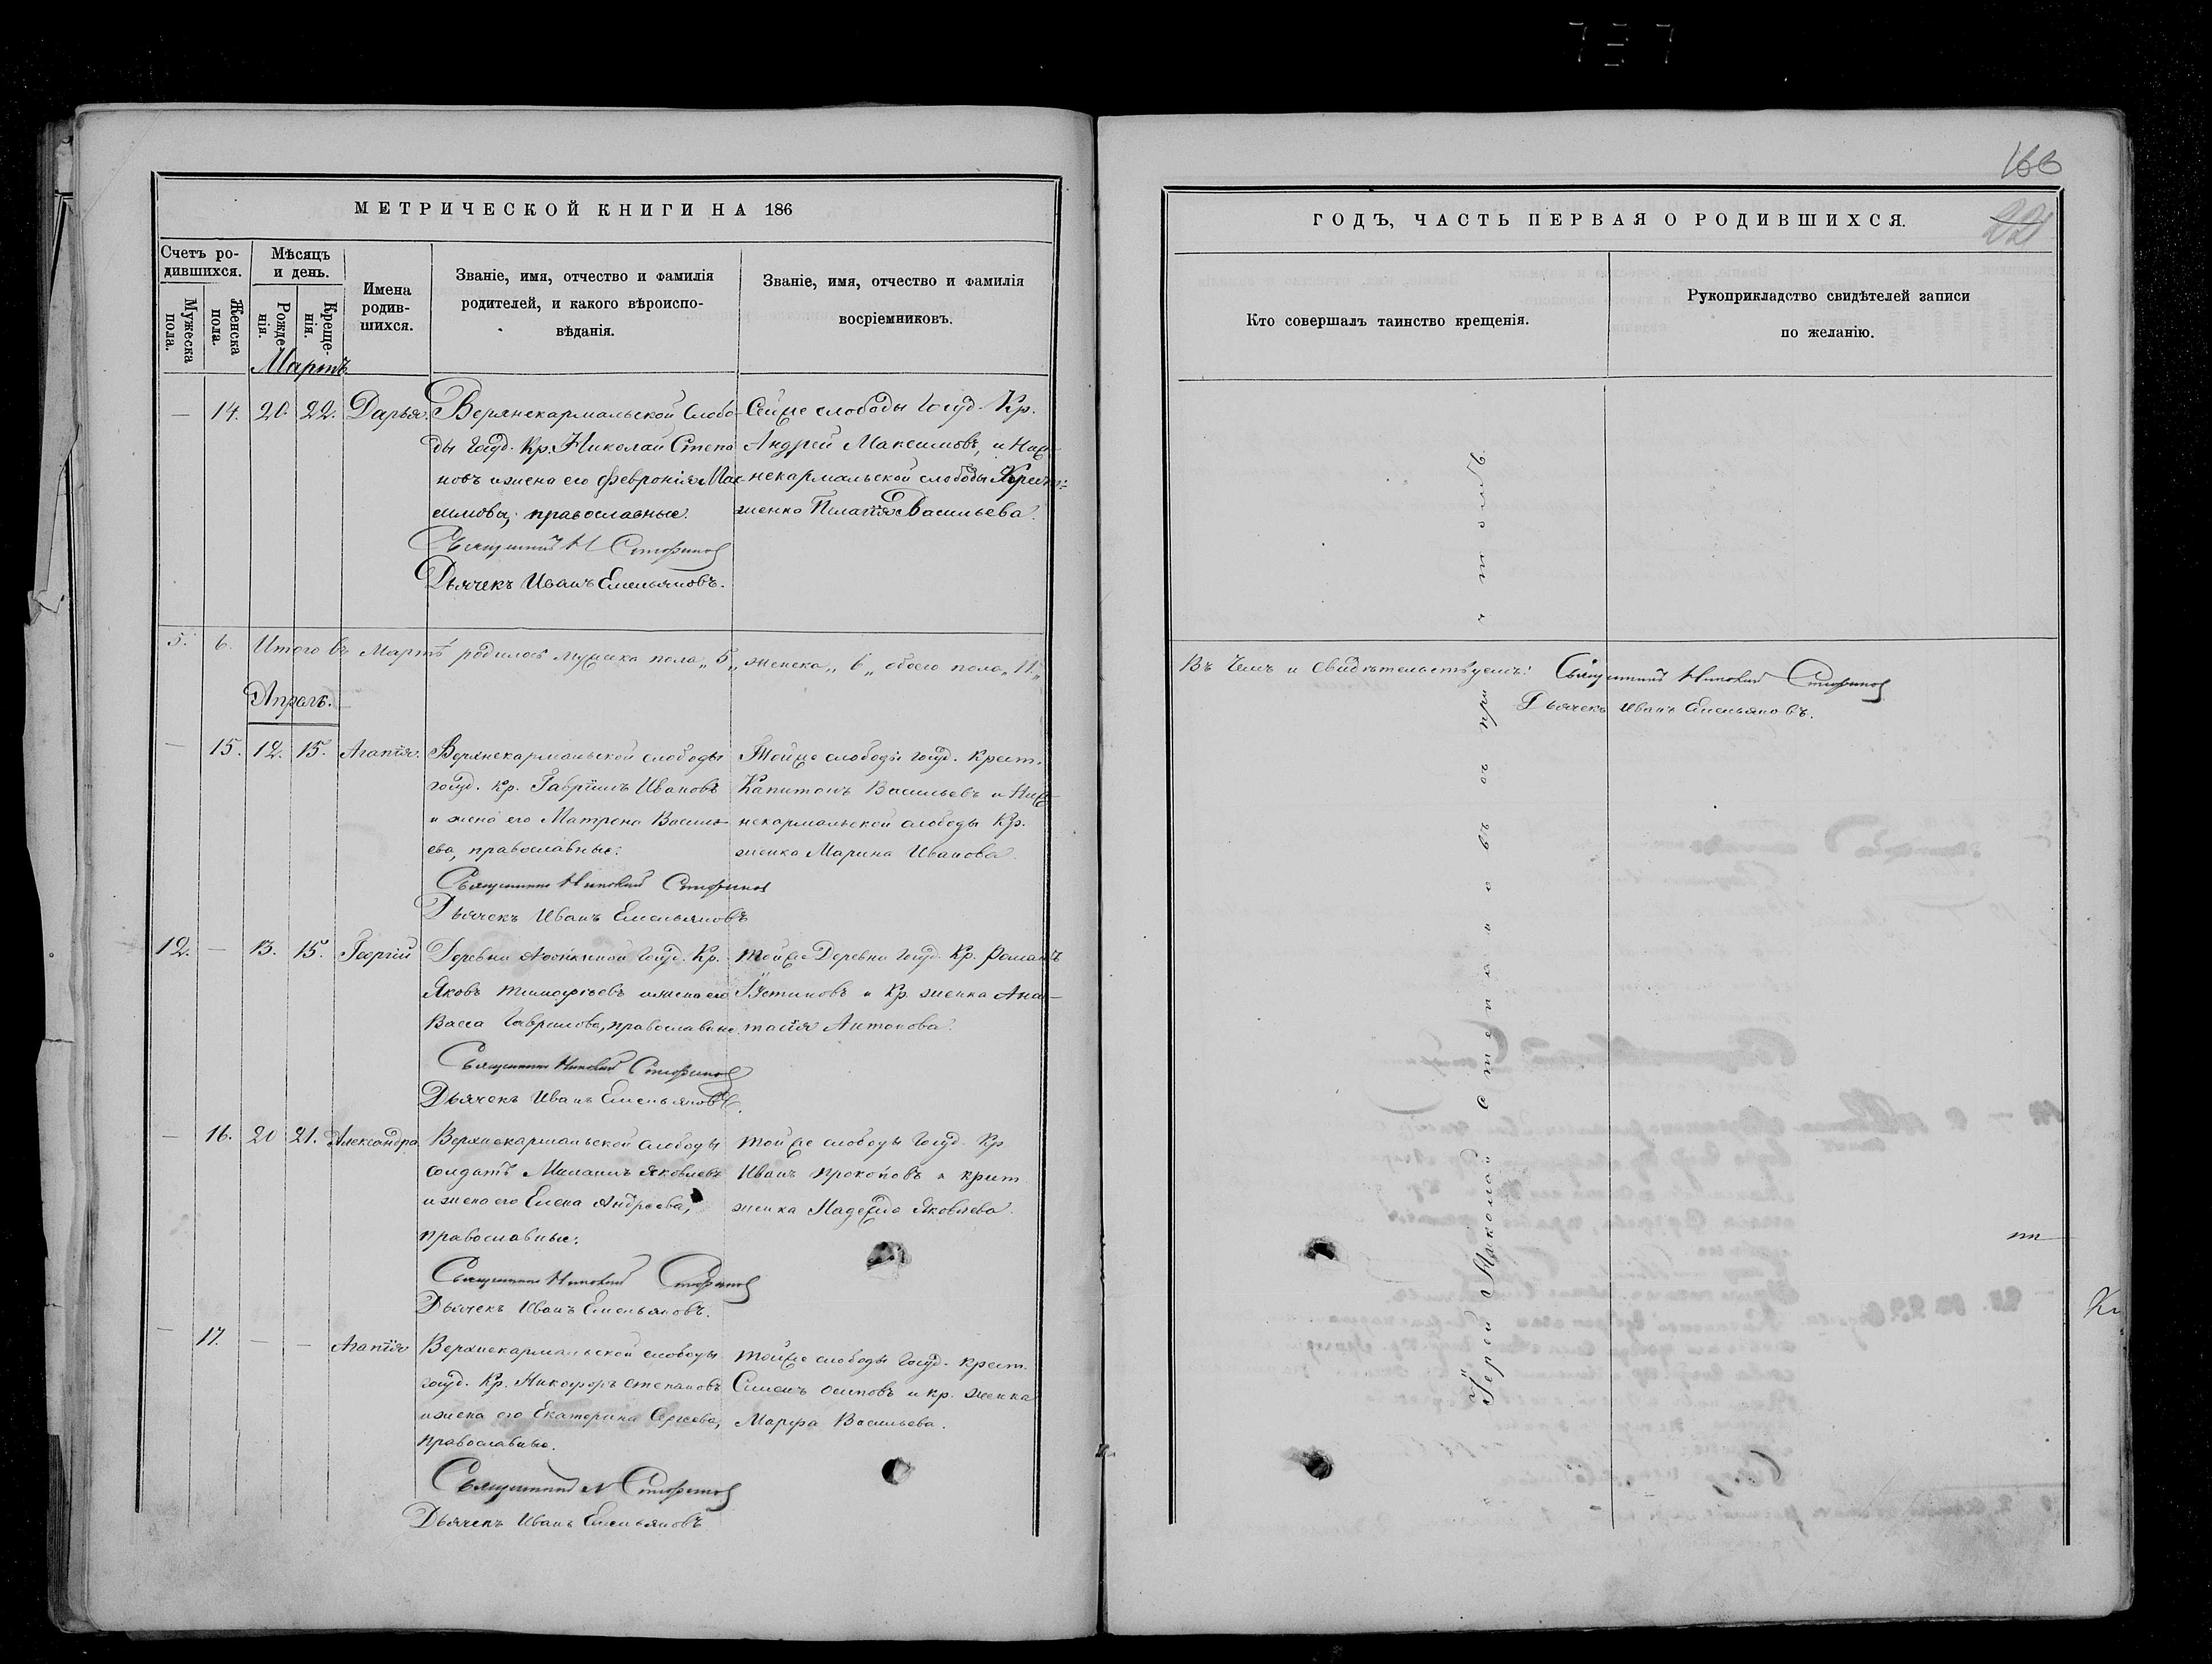 166
221
МЕТРИЧЕСКОЙ КНИГИ НА 186
Счетъ ро-
дившихся.
Мужеска
пола.
Женска
пола.
Мѣсяцъ
и день.
Рожде-
нія.
Креще-
нія.
Имена
родив-
шихся.
Званіе, имя, отчество и фамилія
родителей, и какого вѣроиспо-
вѣданія.
Званіе, имя, отчество и фамилія
воспріемниковъ.
Мартъ
— 14. 20. 22. Дарья. Верхнекармальской Слобо- Сейже слободы Госуд. Кр.
ды Госуд. Кр. Николай Степа Андрей Максимовъ, и Ниж-
новъ и жена его Февронія Мак- некармальской слободы Крест:
симова, православные. женка Пелагія Васильева.
Священникъ Н
Дьячекъ Иванъ Емельяновъ.
5. 6. Итого въ Мартѣ родилось мужска пола „5„ женска „6„ обоего пола „11„
Апрель.
— 15. 12. 15. Агапія. Верхнекармальской слободы Тойже слободы госуд. Крест.
госуд. Кр. Гавріилъ Ивановъ Капитонъ Васильевъ и Ниж-
и жена его Матрона Василь- некармальской слободы Кр.
ева, православные. женка Марина Иванова.
Священникъ Николай
Дьячекъ Иванъ Емельяновъ
12. — 13. 15. Георгій Деревни Госуд. Кр. тойже Деревни Госуд. Кр. Романъ
Яковъ Тимофѣевъ и жена его Устиновъ и Кр. женка Ана-
Васса Гаврилова, православные. тасія Антонова.
Священникъ Николай
Дьячекъ Иванъ Емельяновъ.
— 16. 20 21. Александра Верхнекармальской слободы тойже слободы Госуд. Кр
солдатъ Михаилъ Яковлевъ Иванъ Прокоповъ и крест
и жена его Елена Андреева, женка Надежда Яковлева.
православные.
Священникъ Николай
Дьячекъ Иванъ Емельяновъ.
— 17. — — Агапія Верхнекармальской слободы тойже слободы Госуд. крест.
госуд. Кр. Никифоръ Степановъ Симеонъ Осиповъ и кр. женка
и жена его Екатерина Сергеева, Марфа Васильева.
православные.
Священникъ Н
Дьячекъ Иванъ Емельяновъ
ГОДЪ, ЧАСТЬ ПЕРВАЯ О РОДИВШИХСЯ.
Кто совершалъ таинство крещенія.
Рукоприкладство свидѣтелей записи
по желанію.
Въ чемъ и свидѣтельствуемъ: Священникъ Николай
Дьячекъ Иванъ Емельяновъ.
Іерей Николай съ причтомъ.